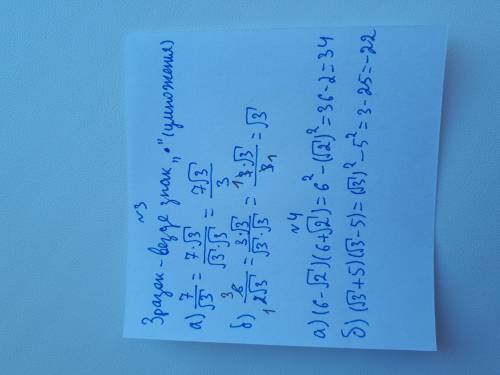 №3
3 разак - везде знак „•" (умножения)
а) 7/√3 = 7·√3/√3·√3 = 7√3/3
б) ³6/₁2√3 = 3·√3/√3·√3 = ¹3·√3/3₁ = √3
№4
а) (6-√2)(6+√2) = 6² - (√2)² = 36 - 2 = 34
б) (√3+5)(√3-5) = (√3)² - 5² = 3 - 25 = -22